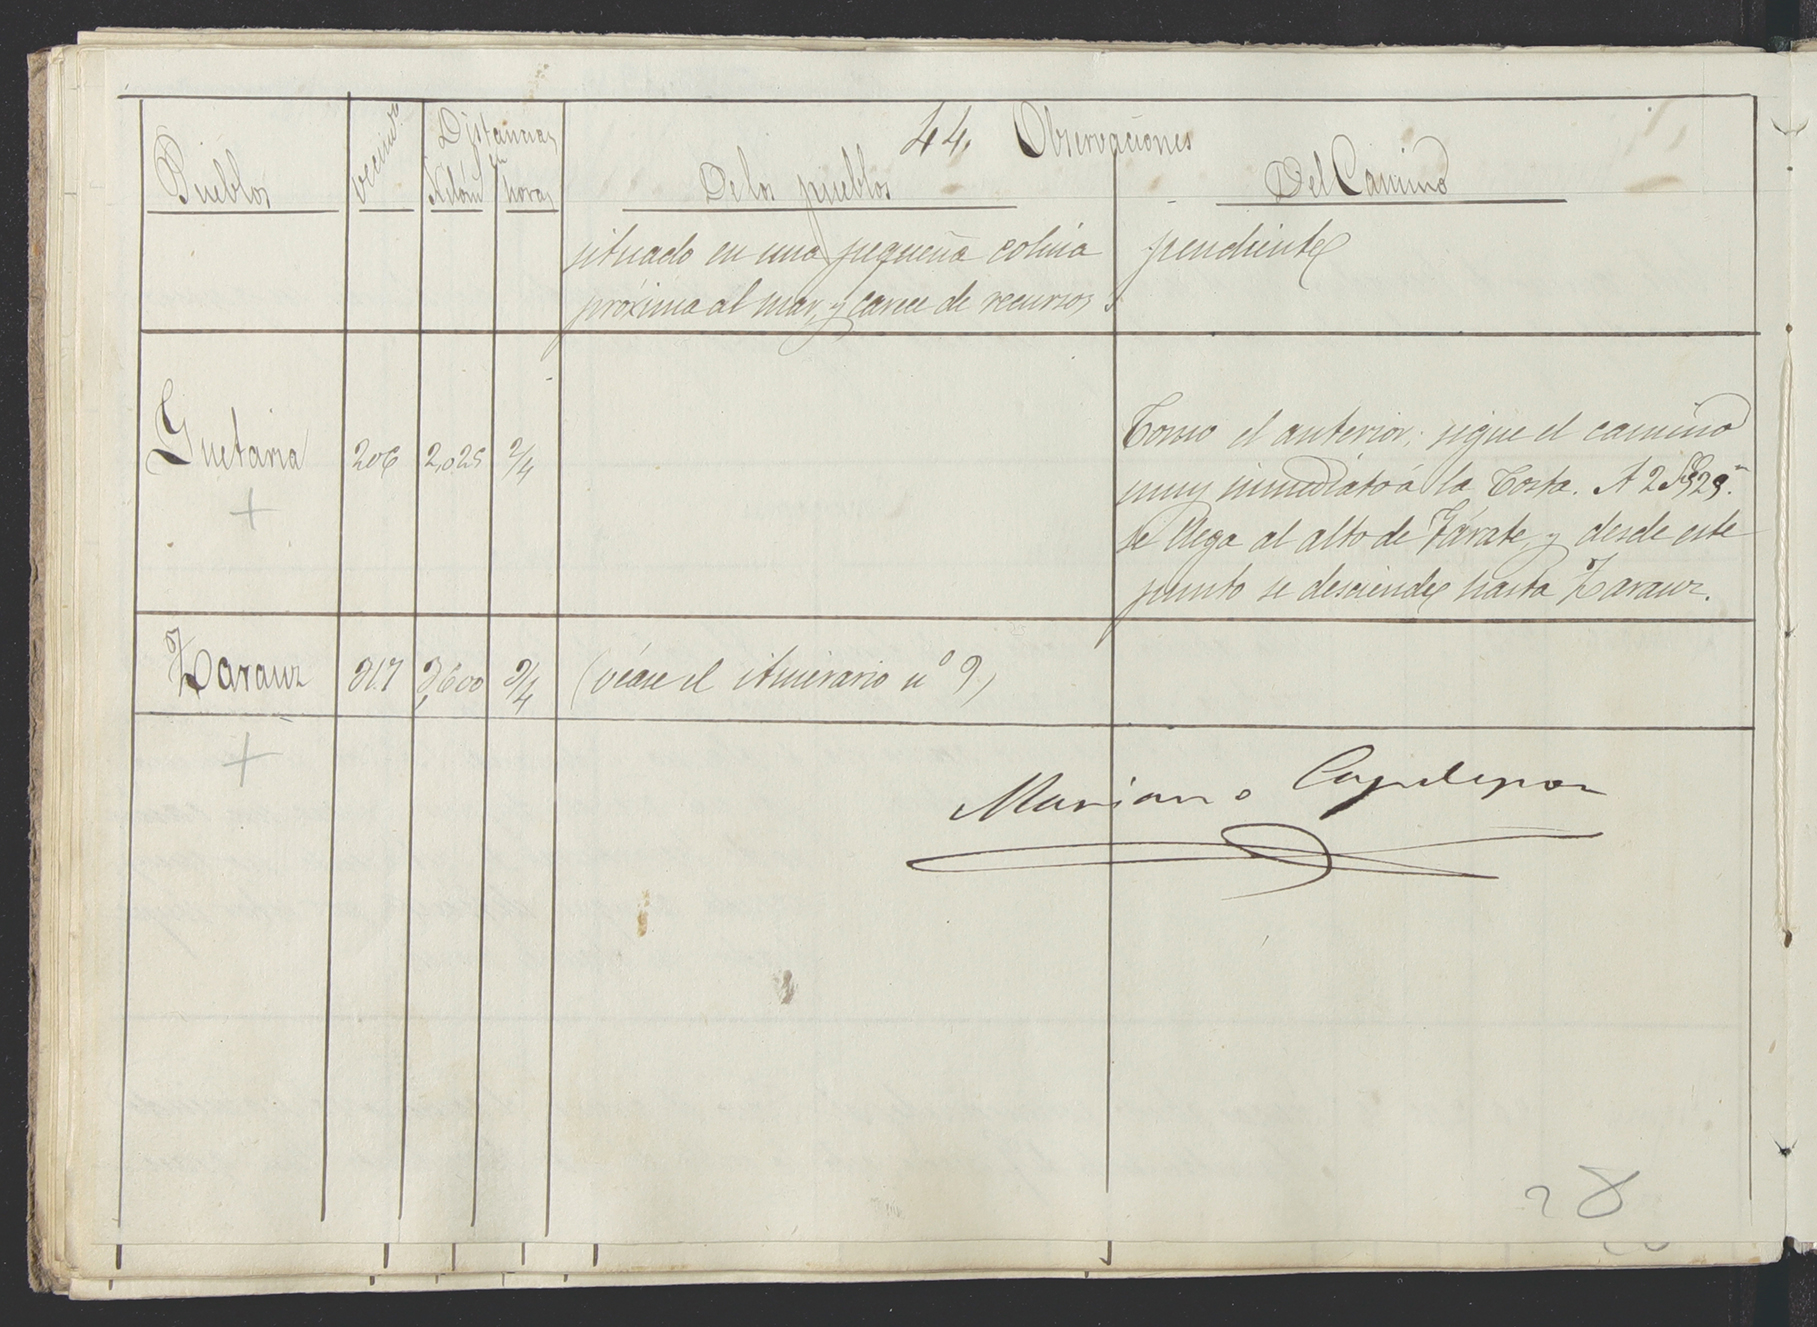 44. Observaciones
Pueblos
vecind.os
Distancias en
Kilóm
horas
De los pueblos
Del Camino
situado en una pequeña colina
próxima al mar, y carece de recursos.
pendiente
Guetaria 206 2,025 2/4
Como el anterior; sigue el camino
muy inmediato á la Costa. A 2
se llega al alto de Zárate, y desde este
punto se desciende hasta Zarauz.
+
Zarauz 317 3,600 3/4 (véase el itinerario nº 9)
+
Mariano Capdepon
28